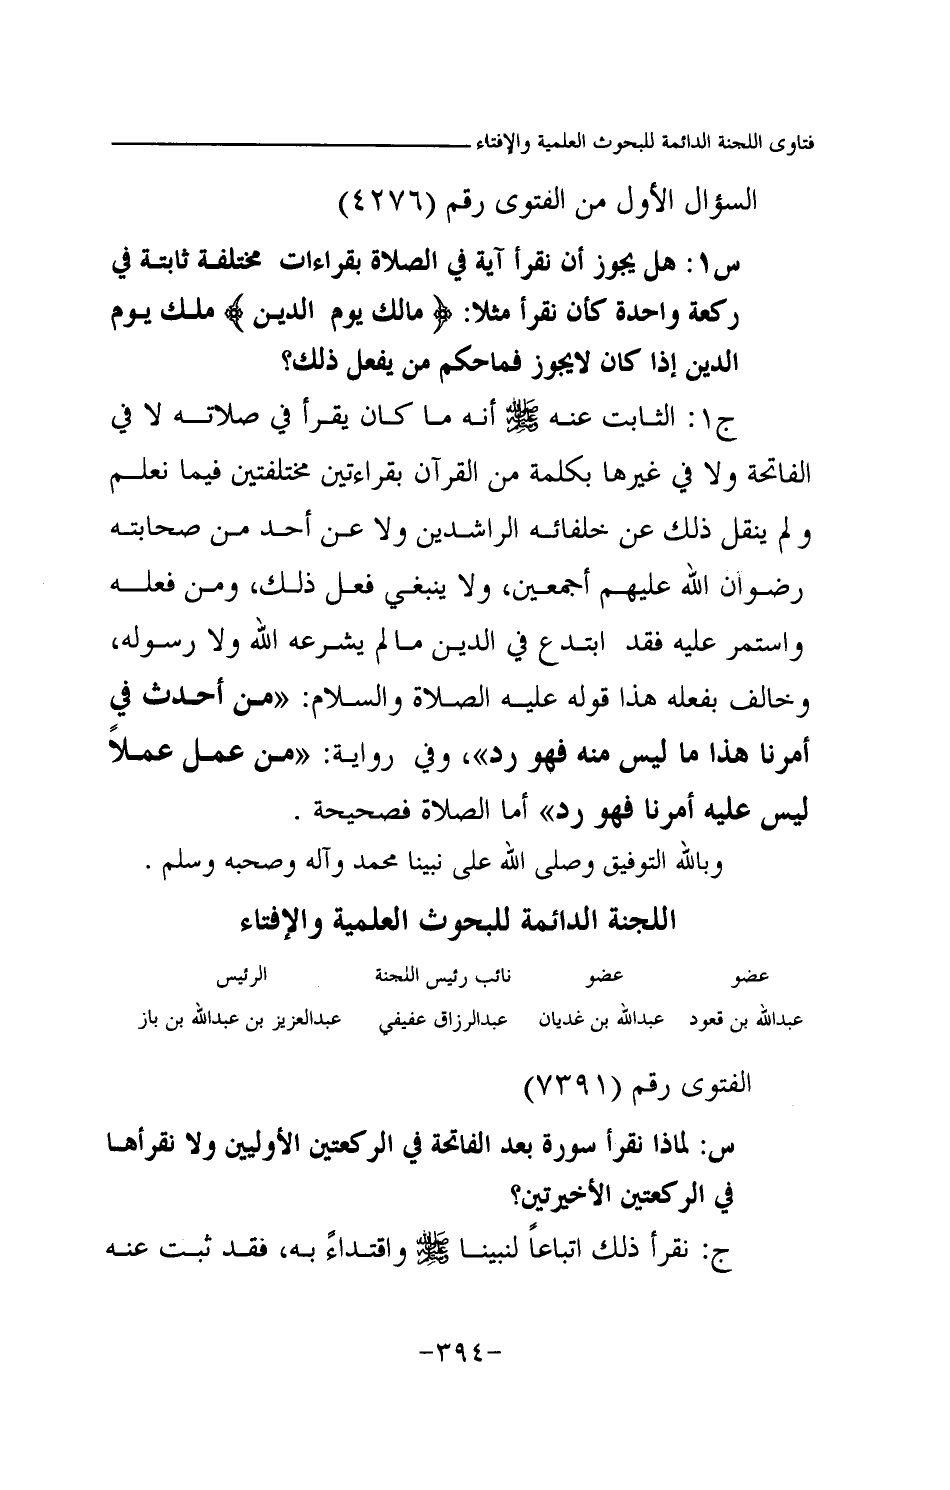 فتاوى اللجنة الدائمة للبحوث العلمية والإفتاء
السؤال الأول من الفتوى رقم (٤٢٧٦)
س١: هل يجوز أن نقرأ آية في الصلاة بقراءات مختلفة ثابتة في
ركعة واحدة كأن نقرأ مثلا: ﴿ مالك يوم الدين ﴾ ملك يوم
الدين إذا كان لايجوز فماحكم من يفعل ذلك؟
ج١: الثابت عنه ﷺ أنه ما كان يقرأ في صلاته لا في
الفاتحة ولا في غيرها بكلمة من القرآن بقراءتين مختلفتين فيما نعلم
و لم ينقل ذلك عن خلفائه الراشدين ولا عن أحد من صحابته
رضوان الله عليهم أجمعين، ولا ينبغي فعل ذلك، ومن فعله
واستمر عليه فقد ابتدع في الدين مالم يشرعه الله ولا رسوله،
وخالف بفعله هذا قوله عليه الصلاة والسلام: «من أحدث في
أمرنا هذا ما ليس منه فهو رد»، وفي رواية: «من عمل عملاً
ليس عليه أمرنا فهو رد» أما الصلاة فصحيحة .
وبالله التوفيق وصلى الله على نبينا محمد وآله وصحبه وسلم .
اللجنة الدائمة للبحوث العلمية والإفتاء
عضو عضو نائب رئيس اللجنة الرئيس
عبدالله بن قعود عبدالله بن غديان عبدالرزاق عفيفي عبدالعزيز بن عبدالله بن باز
الفتوى رقم (٧٣٩١)
س: لماذا نقرأ سورة بعد الفاتحة في الركعتين الأوليين ولا نقرأها
في الركعتين الأخيرتين؟
ج: نقرأ ذلك اتباعاً لنبينا ﷺ واقتداءً به، فقد ثبت عنه
-٣٩٤-